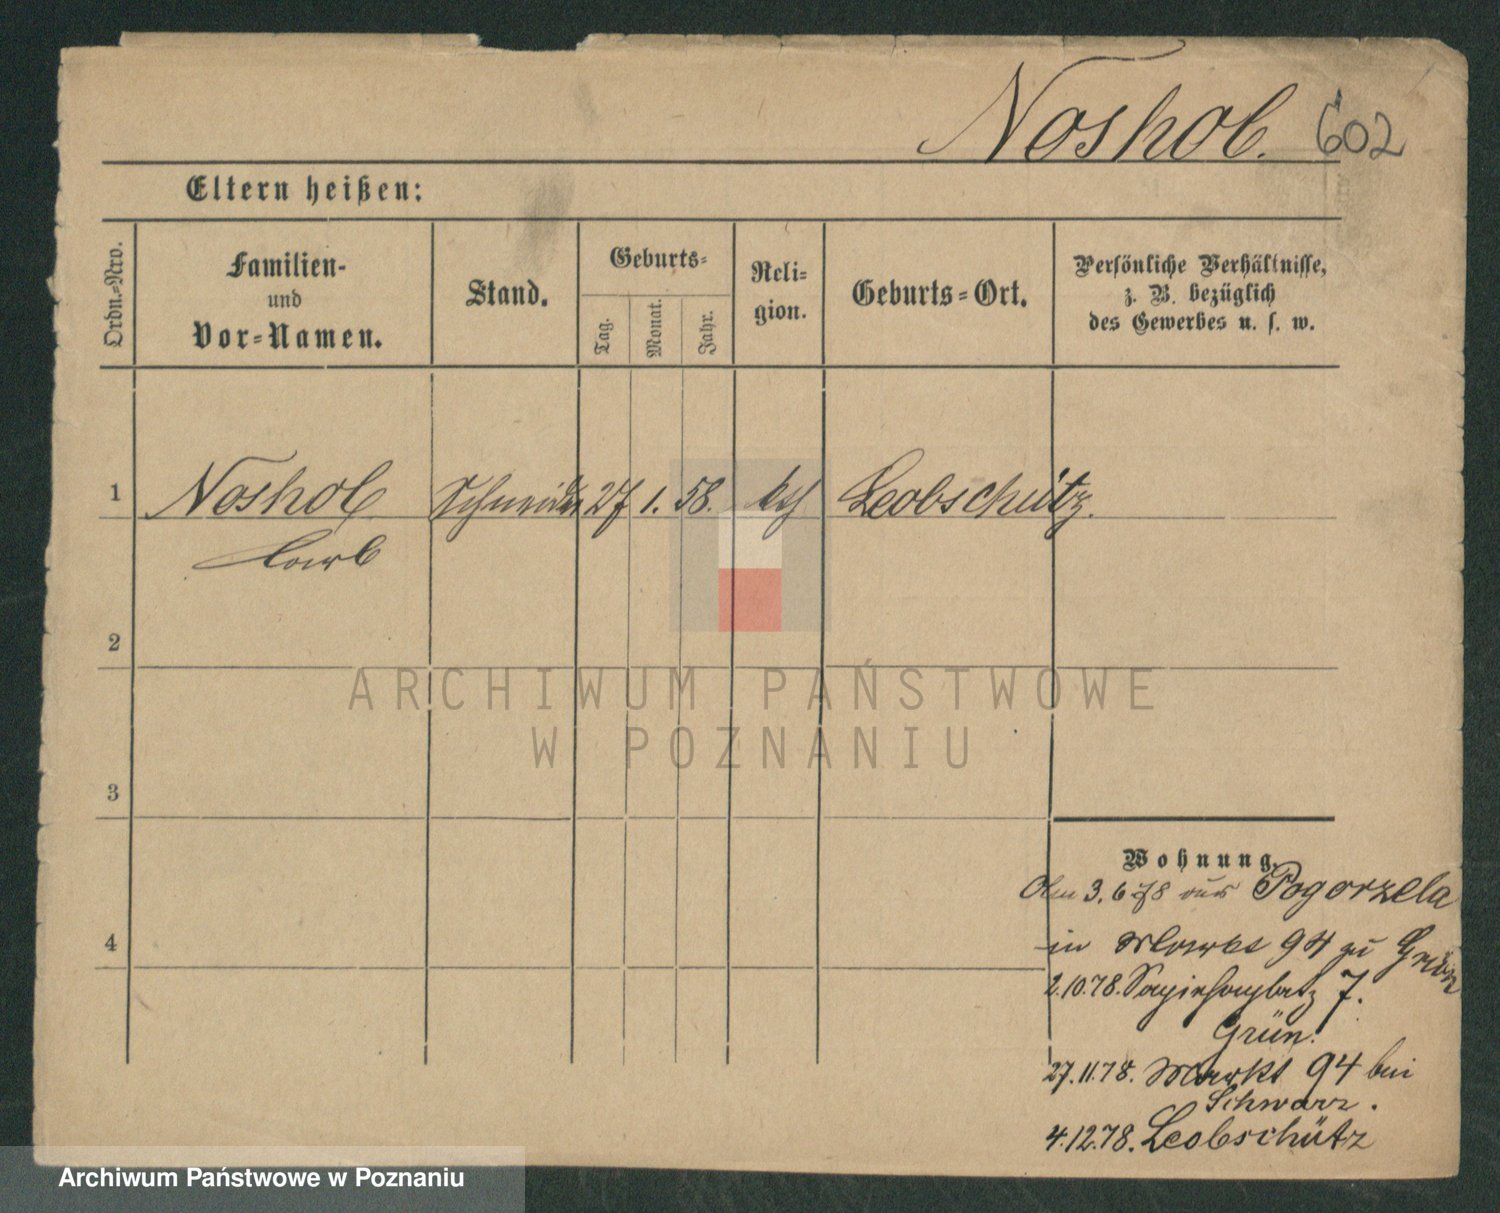 Noshol. 602
Eltern heißen:
Ordn.-Nro.
Familien-
und
Vor-Namen.
Stand.
Geburts-
Tag.
Monat.
Jahr.
Reli-
gion.
Geburts-Ort.
Persönliche Verhältnisse,
z. B. bezüglich
des Gewerbes u. s. w.
1 Noshol Schneider 27 1. 58. kth Leobschütz.
Carl
2
3
4
ARCHIWUM PAŃSTWOWE
W POZNANIU
Wohnung.
3.6.78 aus Pogorzela
in Markt 94 zu Grün
2.10.78. Sapiehaplatz 7.
Grün.
27.11.78. Markt 94 bei
Schwarz.
4.12.78. Leobschütz
Archiwum Państwowe w Poznaniu